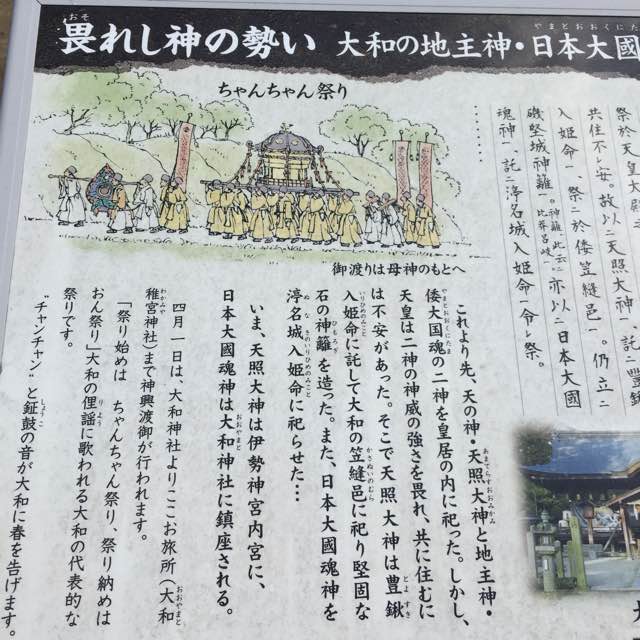 畏れし神の勢い 大和の地主神・日本大國
ちゃんちゃん祭り
御渡りは母神のもとへ
祭於天皇大殿之
共住不安。故以二天照大神一、託二豊鍬
入姫命一、祭二於倭笠縫邑一。仍立二
磯堅城神籬一。神籬、此云二比莽呂岐一。亦以二日本大國
魂神一、託二渟名城入姫命一令レ祭。
……
これより先、天の神・天照大神と地主神・
倭大国魂の二神を皇居の内に祀った。しかし、
天皇は二神の神威の強さを畏れ、共に住むに
は不安があった。そこで天照大神は豊鍬
入姫命に託して大和の笠縫邑に祀り堅固な
石の神籬を造った。また、日本大國魂神を
渟名城入姫命に祀らせた…
いま、天照大神は伊勢神宮内宮に、
日本大國魂神は大和神社に鎮座される。
四月一日は、大和神社よりここお旅所(大和
稚宮神社)まで神輿渡御が行われます。
「祭り始めは ちゃんちゃん祭り、祭り納めは
おん祭り」大和の俚謡に歌われる大和の代表的な
祭りです。
"チャンチャン"と鉦鼓の音が大和に春を告げます。